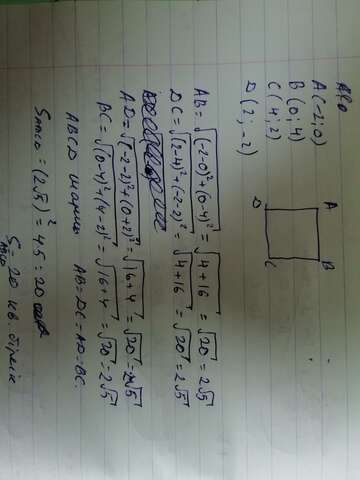 A(-2; 0)
B (0; 4)
C (4; 2)
D (2; -2)
A
B
D
C
AB = √(-2-0)²+(0-4)² = √4+16 = √20 = 2√5
DC = √(2-4)²+(-2-2)² = √4+16 = √20 = 2√5
AD = √(-2-2)²+(0+2)² = √16+4 = √20 = 2√5
BC = √(0-4)²+(4-2)² = √16+4 = √20 = 2√5
ABCD шаршы AB=DC=AD=BC.
SABCD = (2√5)² = 4·5 = 20
SABCD = 20 кв. бірлік